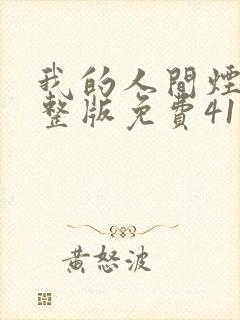 我的人間煙
整版免費41
黃怒波